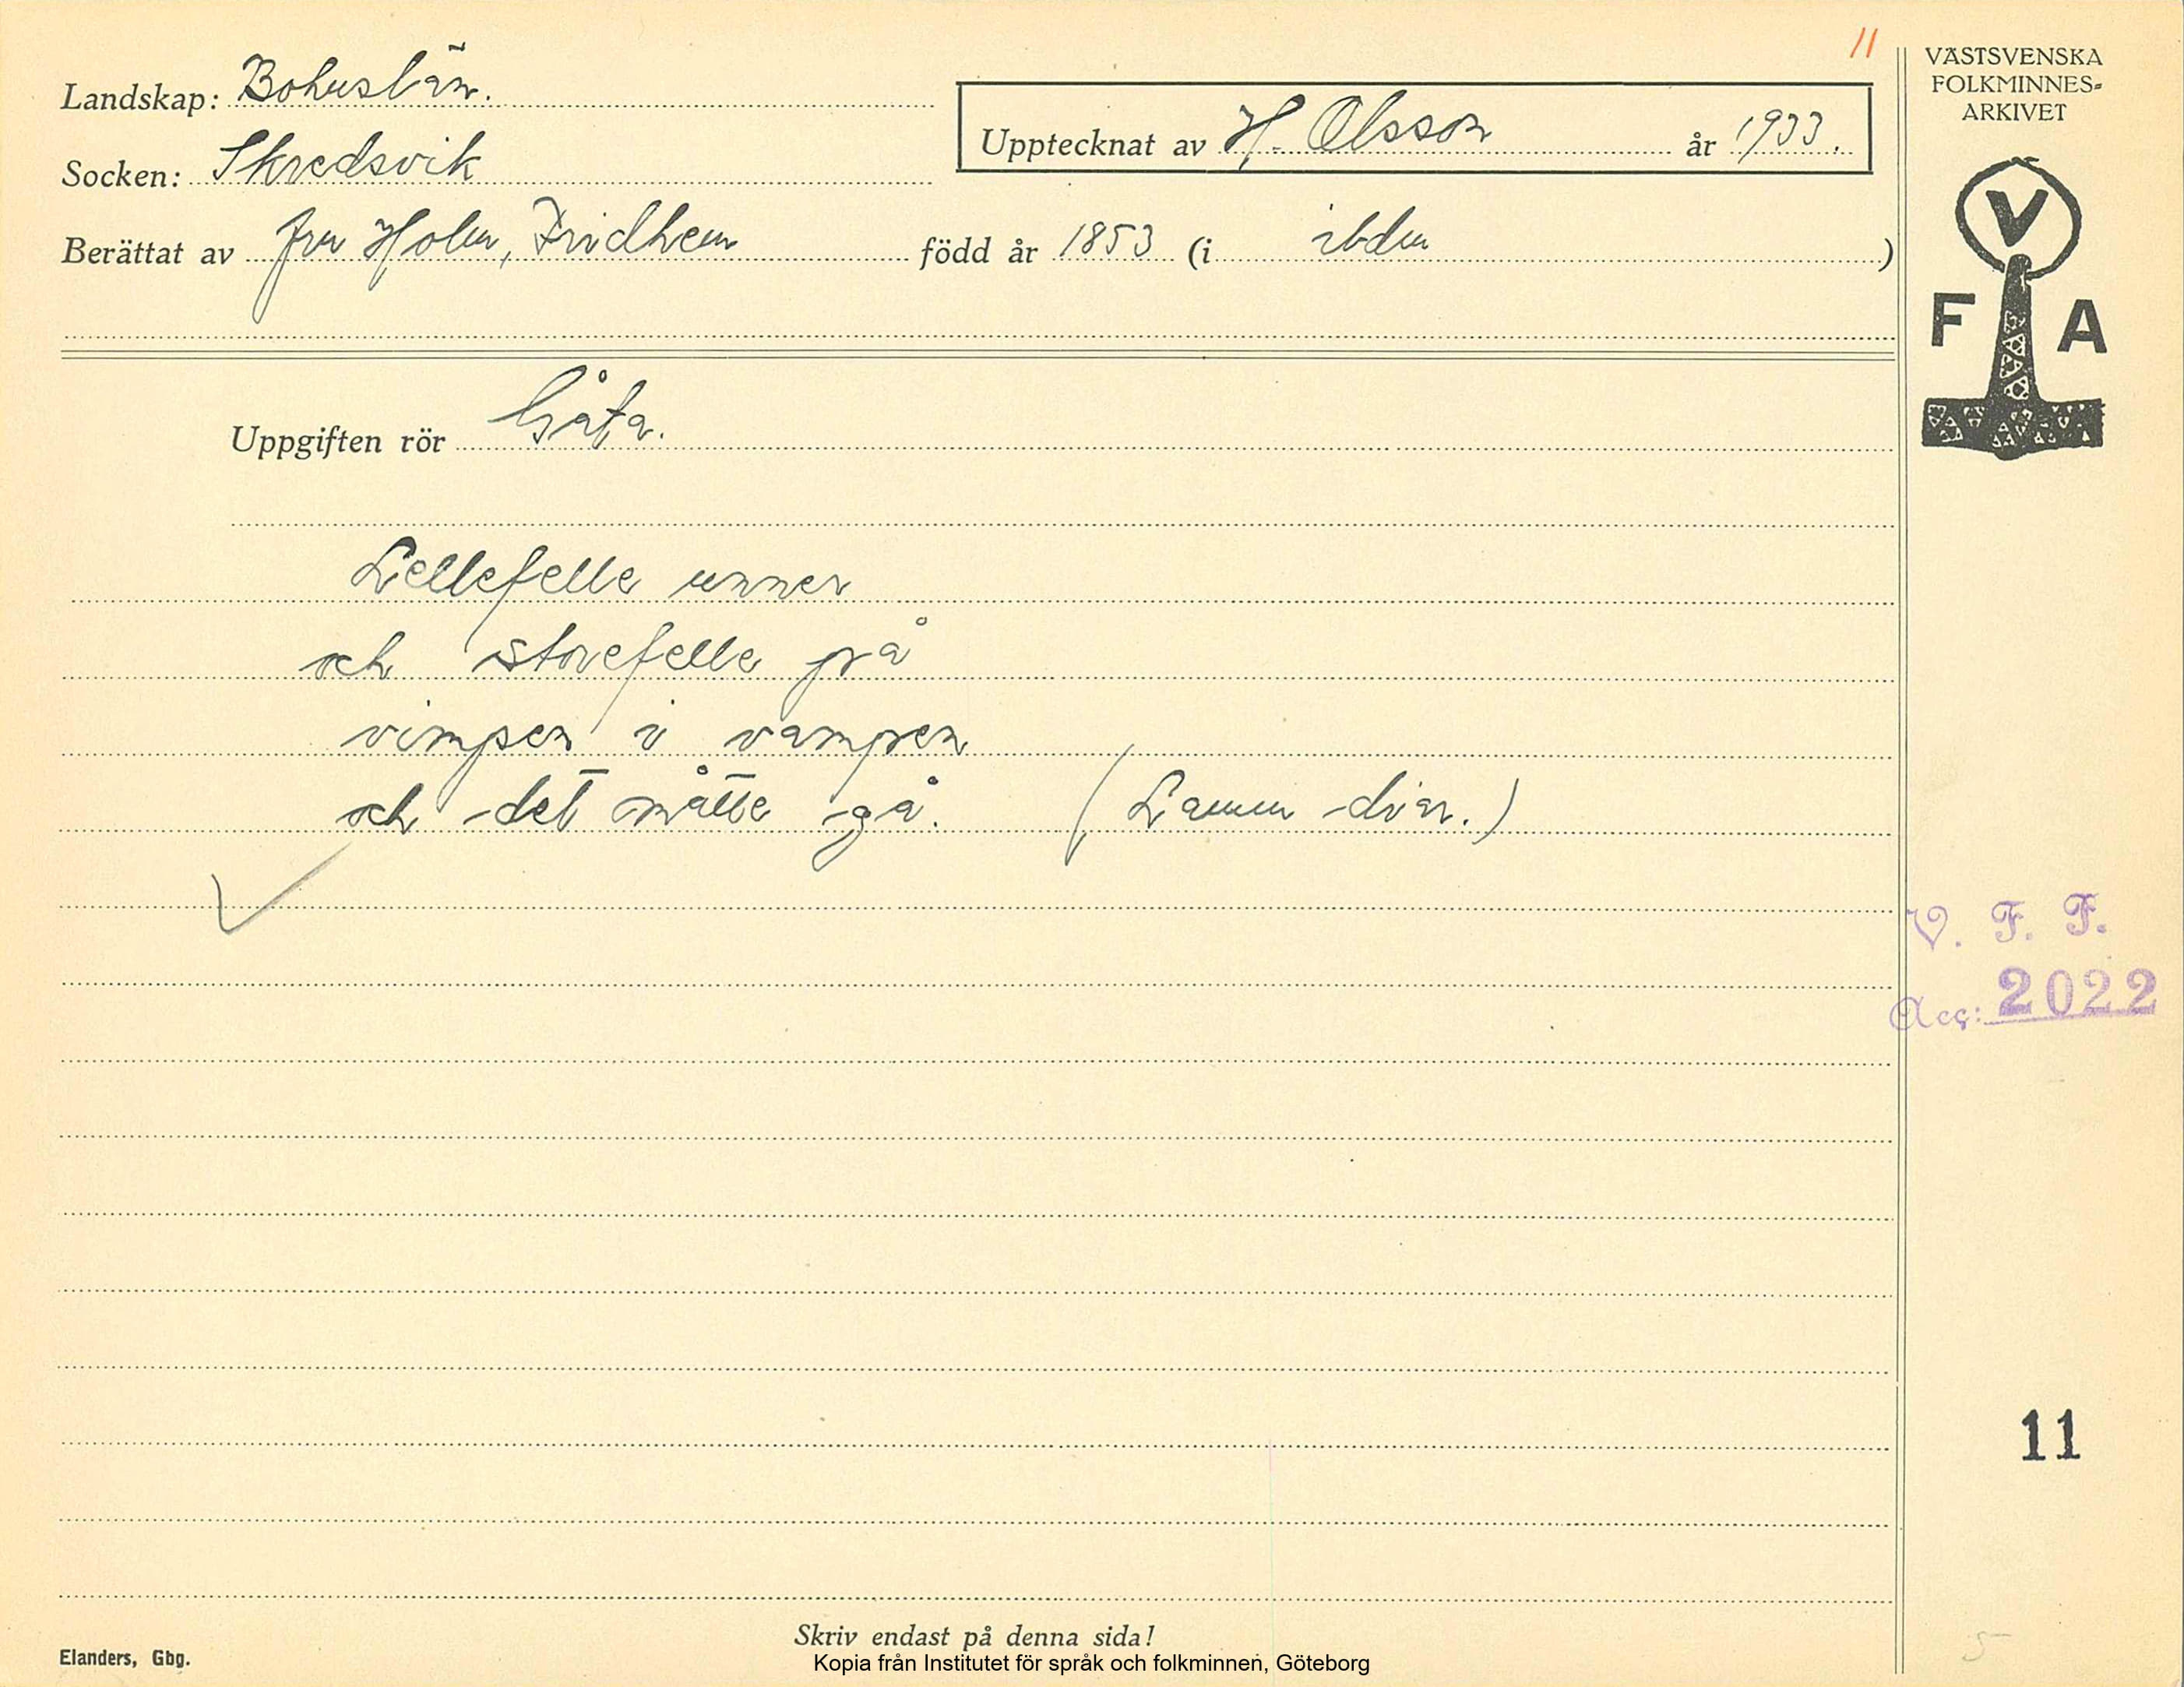 11
Landskap: Bohuslän.
Socken: Skredsvik
Upptecknat av H. Olsson år 1933.
Berättat av fru Holm, Fridhem född år 1853 (i ibdm)
Uppgiften rör Gåta.
Lellefelle unner
och storefelle på
vimpen i vampen
och det måtte gå. (Lamm diar.)
VÄSTSVENSKA
FOLKMINNES-
ARKIVET
V
F A
V. F. F.
Acc: 2022
11
5
Skriv endast på denna sida!
Elanders, Gbg.
Kopia från Institutet för språk och folkminnen, Göteborg